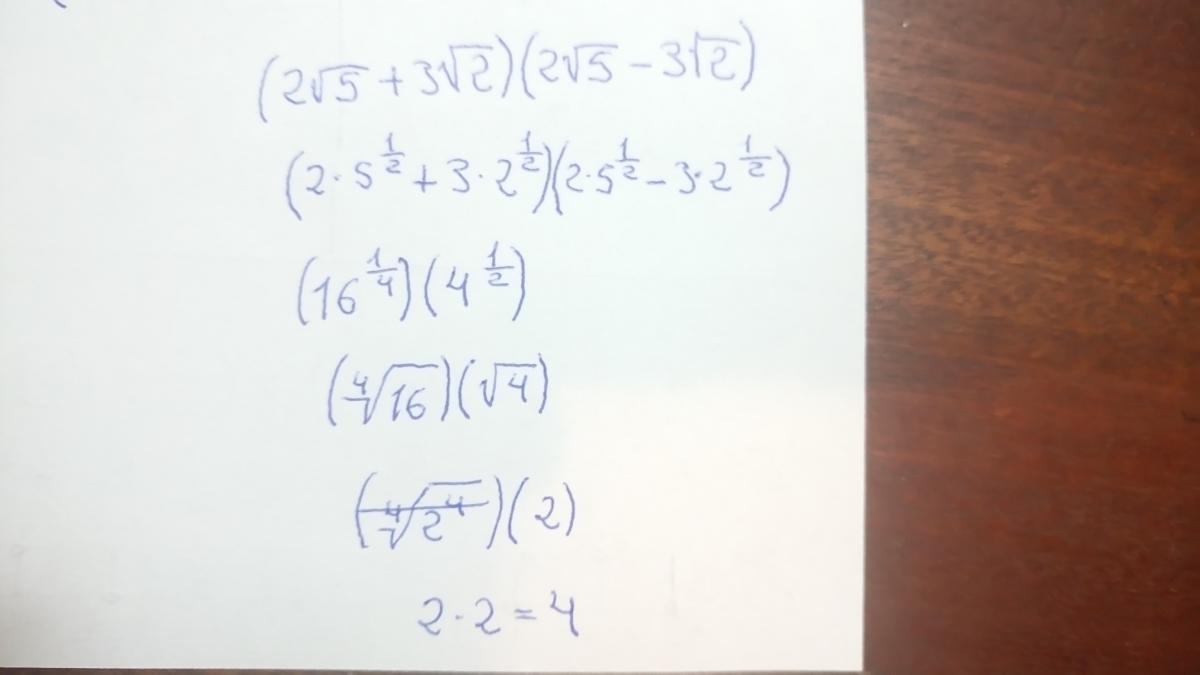 (2√5 + 3√2)(2√5 − 3√2)
(2·5^{1/2} + 3·2^{1/2})(2·5^{1/2} − 3·2^{1/2})
(16^{1/4})(4^{1/2})
(∜16)(√4)
(∜2^4)(2)
2·2 = 4